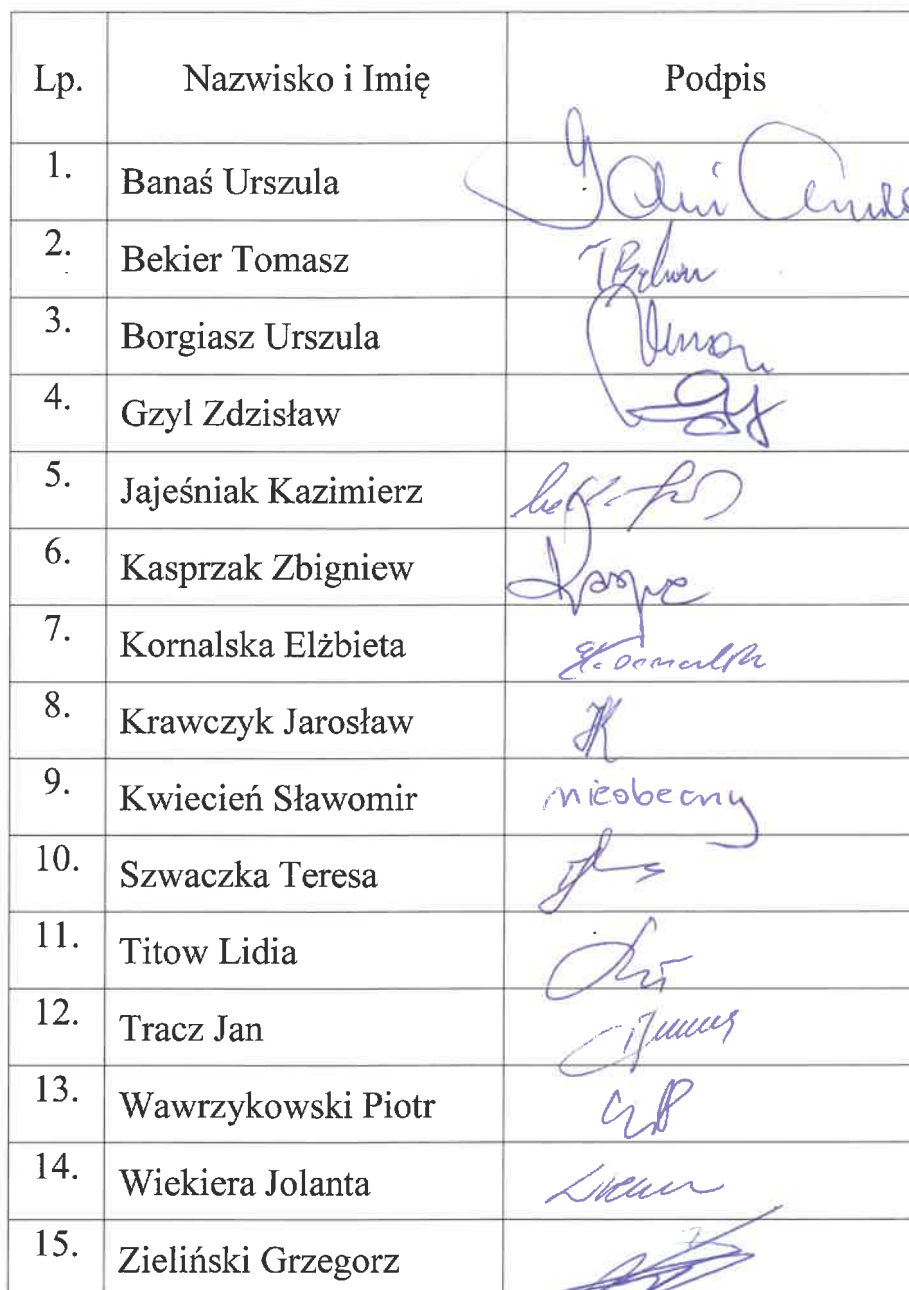 Lp. Nazwisko i Imię Podpis
1. Banaś Urszula
2. Bekier Tomasz
3. Borgiasz Urszula
4. Gzyl Zdzisław
5. Jajeśniak Kazimierz
6. Kasprzak Zbigniew
7. Kornalska Elżbieta
8. Krawczyk Jarosław JK
9. Kwiecień Sławomir nieobecny
10. Szwaczka Teresa
11. Titow Lidia
12. Tracz Jan
13. Wawrzykowski Piotr
14. Wiekiera Jolanta
15. Zieliński Grzegorz